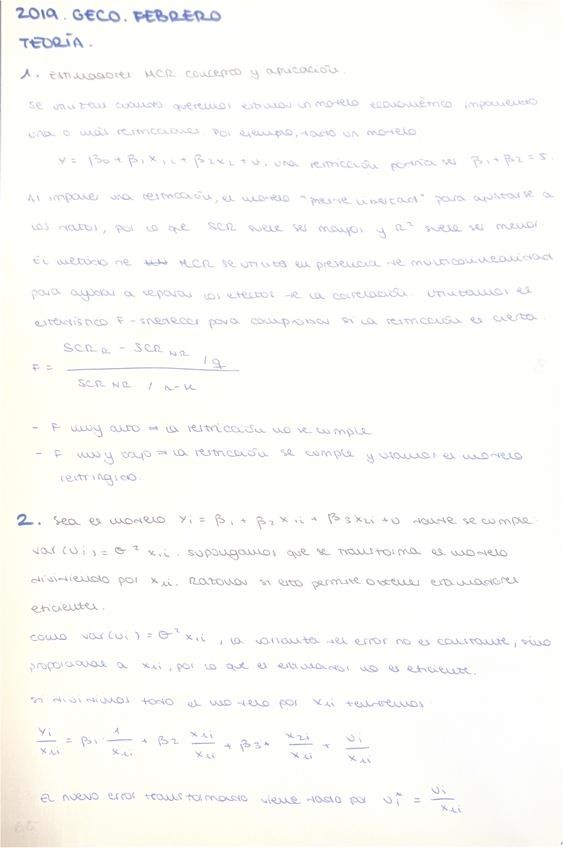 2019. GECO. FEBRERO
TEORÍA.
1. Estimadores MCR concepto y aplicación.
Se utilizan cuando queremos estimar un modelo econométrico imponiendo
una o más restricciones. Por ejemplo, dado un modelo
Y = β0 + β1 X1i + β2X2 + U, una restricción podría ser β1 + β2 = 5.
Al imponer una restricción, el modelo "pierde libertad" para ajustarse a
los datos, por lo que SCR suele ser mayor y R² suele ser menor.
El método de MCR se utiliza en presencia de multicolinealidad
para ayudar a separar los efectos de la correlación. Utilizamos el
estadístico F-Snedecor para comprobar si la restricción es cierta.
F = SCR R - SCR NR / q
SCR NR / n-k
- F muy alto ⇒ la restricción no se cumple
- F muy bajo ⇒ la restricción se cumple y usamos el modelo
restringido.
2. Sea el modelo Yi = β1 + β2 X1i + β3X2i + U donde se cumple
Var(Ui) = σ² X1i. Supongamos que se transforma el modelo
dividiendo por X1i. Razonar si esto permite obtener estimadores
eficientes.
Como Var(Ui) = σ² X1i, la varianza del error no es constante, sino
proporcional a X1i, por lo que el estimador no es eficiente.
Si dividimos todo el modelo por X1i tendremos
Yi/X1i = β1 · 1/X1i + β2 X1i/X1i + β3 · X2i/X1i + Ui/X1i
El nuevo error transformado viene dado por Ui* = Ui/X1i